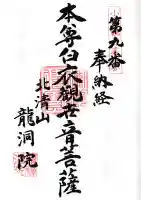 第九番
奉納経
本尊白衣観世音菩薩
北清山
龍洞院